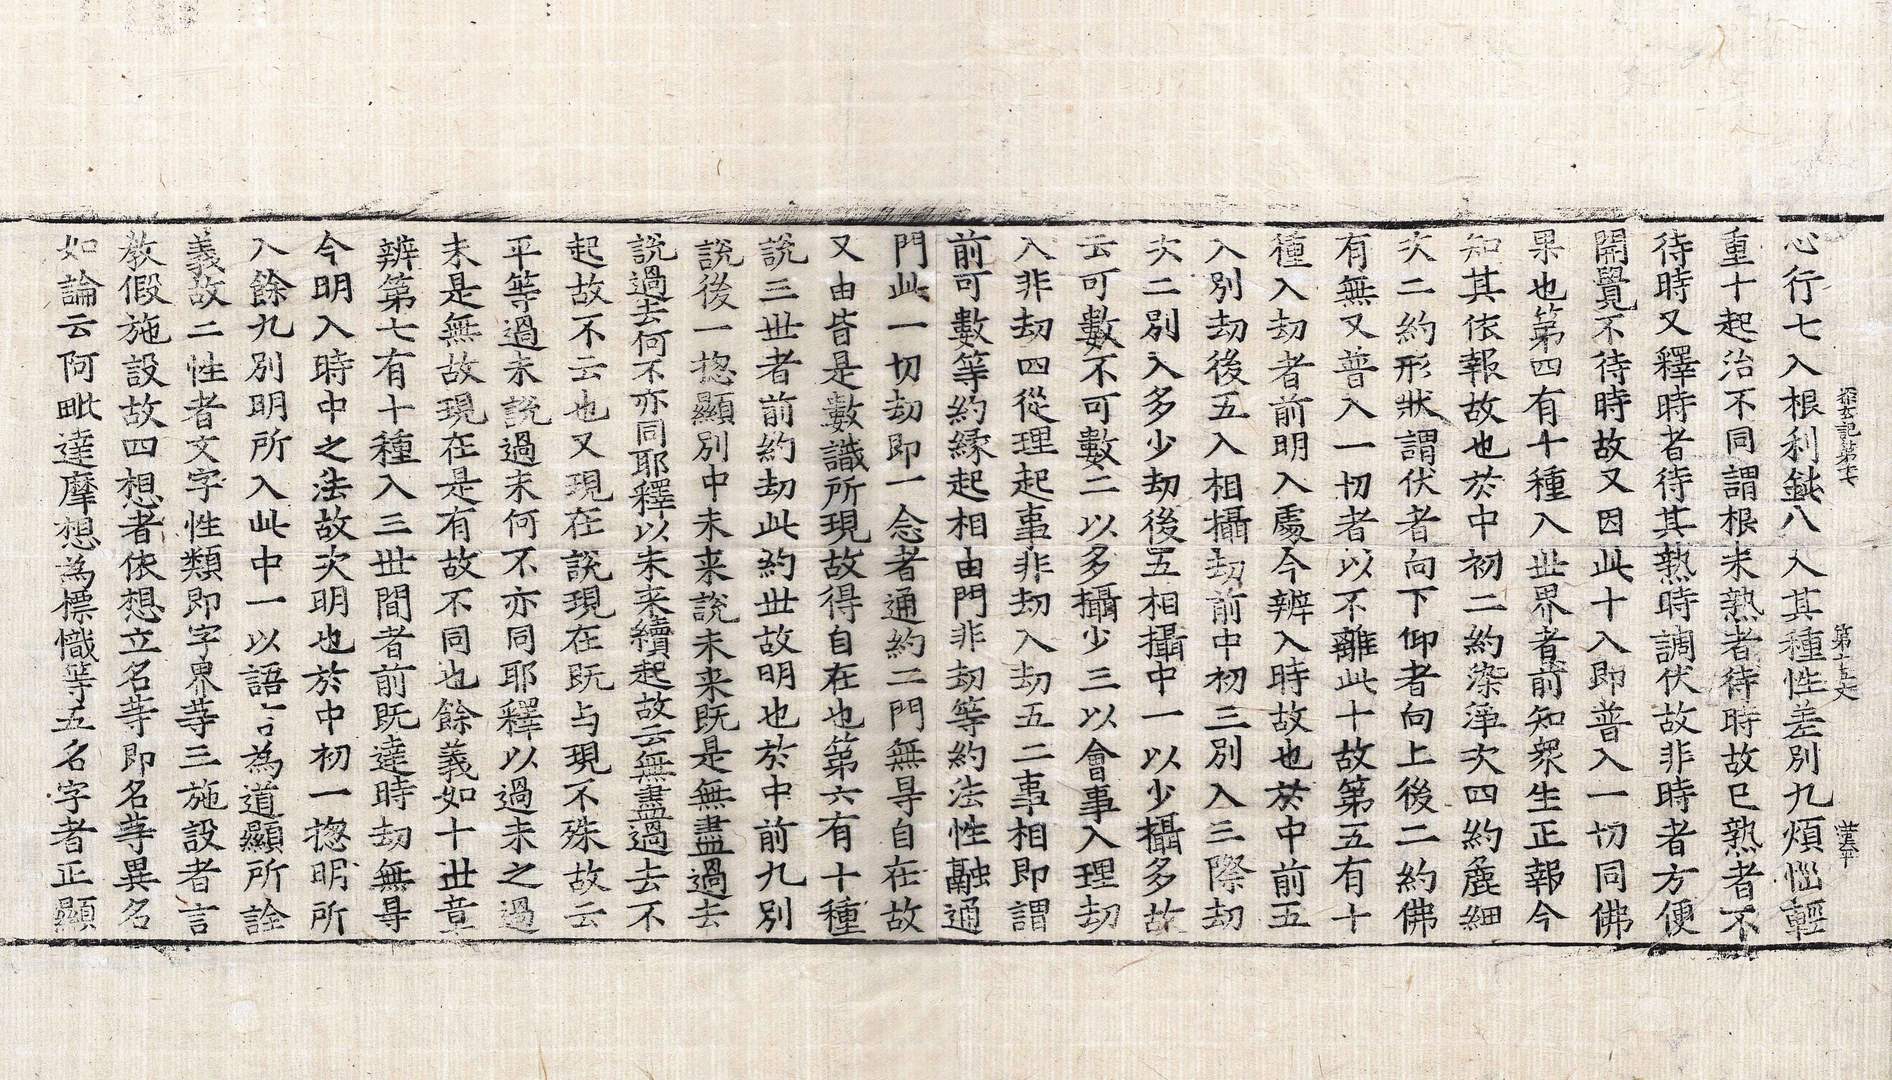 探玄記第十七　第十五丈
心行七入根利鈍八入其種性差別九煩惱輕
重十起治不同謂根未熟者待時故已熟者不
待時又釋時者待其熟時調伏故非時者方便
開覺不待時故又因此十入即普入一切同佛
果也第四有十種入世界者前知衆生正報今
知其依報故也於中初二約染淨次四約麁細
次二約形狀謂伏者向下仰者向上後二約佛
有無又普入一切者以不離此十故第五有十
種入劫者前明入處今辨入時故也於中前五
入別劫後五入相攝劫前中初三別入三際劫
次二別入多少劫後五相攝中一以少攝多故
云可數不可數二以多攝少三以會事入理劫
入非劫四從理起事非劫入劫五二事相即謂
前可數等約緣起相由門非劫等約法性融通
門此一切劫即一念者通約二門無㝵自在故
又由皆是數識所現故得自在也第六有十種
說三世者前約劫此約世故明也於中前九別
說後一揔顯別中未来說未来既是無盡過去
說過去何不亦同耶釋以未来續起故云無盡過去不
起故不云也又現在說現在既与現不殊故云
平等過未說過未何不亦同耶釋以過未之過
未是無故現在是有故不同也餘義如十世章
辨第七有十種入三世間者前既達時劫無㝵
今明入時中之法故次明也於中初一揔明所
入餘九別明所入此中一以語言為道顯所詮
義故二性者文字性類即字界等三施設者言
教假施設故四想者依想立名等即名等異名
如論云阿毗達摩想為幖幟等五名字者正顯